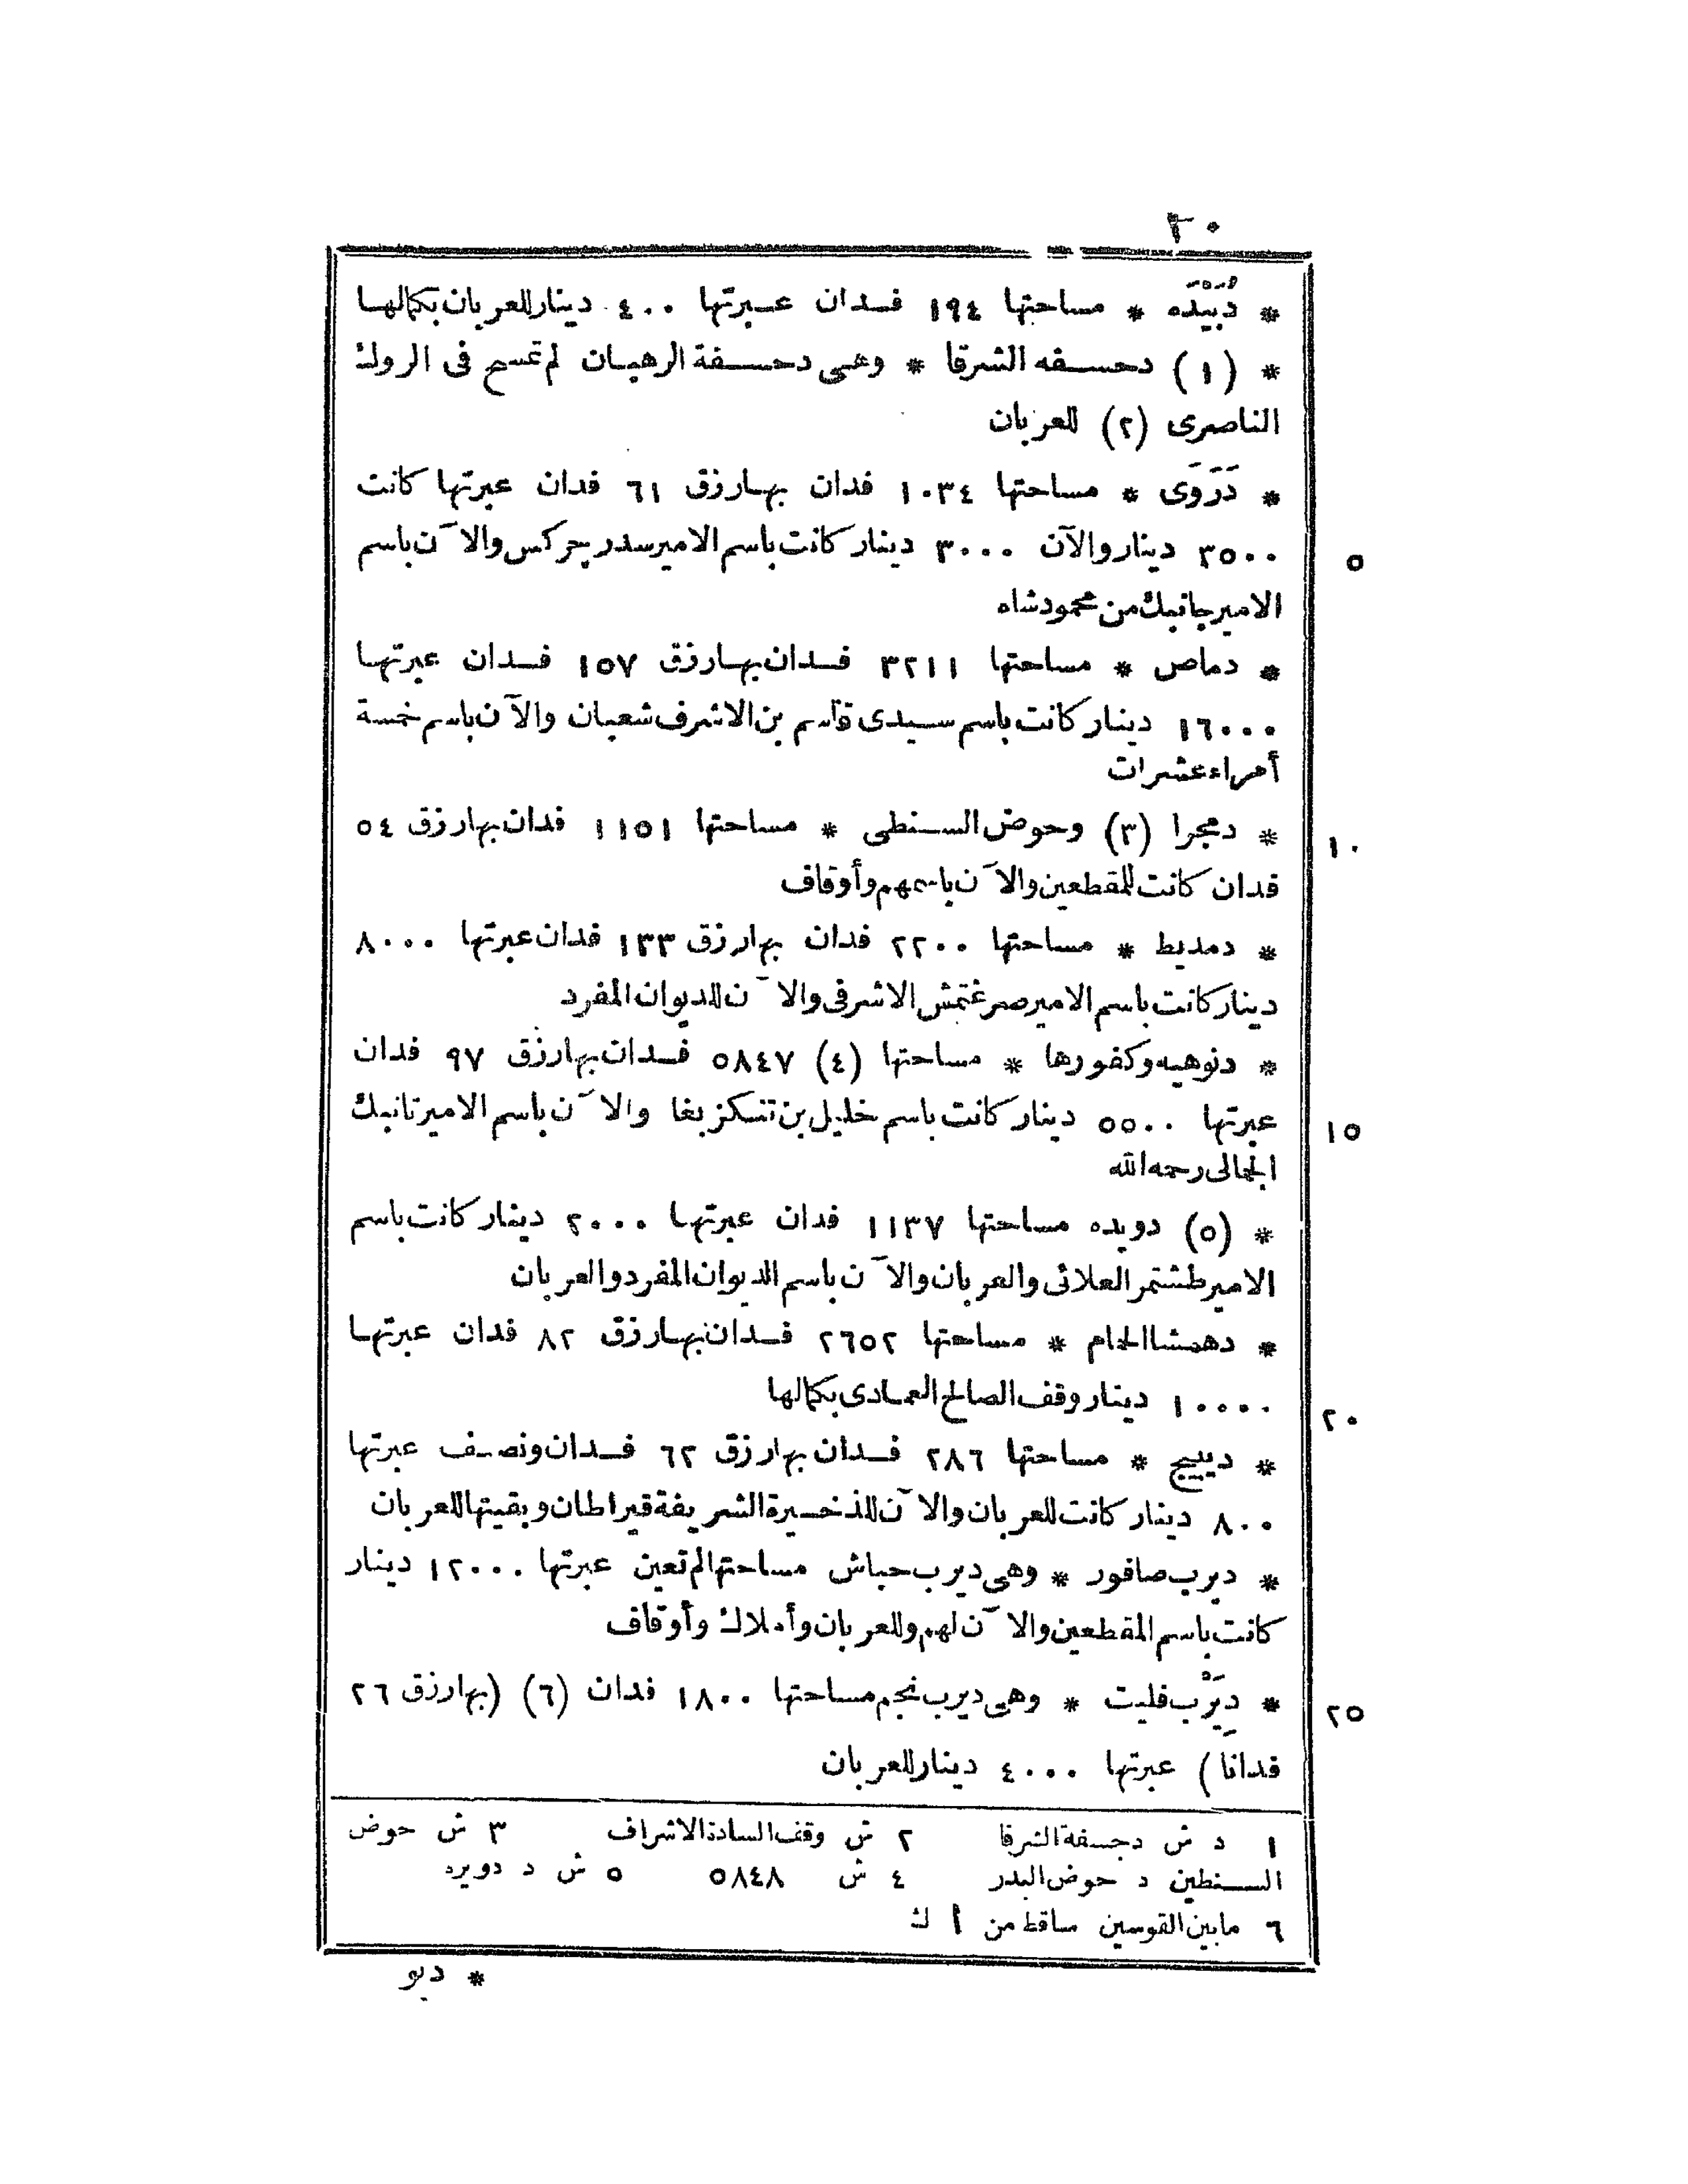 ٣٠
* دُبَيْدَه * مساحتها ١٩٤ فدان عبرتها ٤٠٠ دينار للعربان بكمالها
* (١) دحسفه الشرقا * وهى دحسفة الرهبان لم تمسح فى الروك
الناصرى (٢) للعربان
* دَرَوَى * مساحتها ١٠٣٤ فدان بها رزق ٦١ فدان عبرتها كانت
٣٥٠٠ دينار والآن ٣٠٠٠ دينار كانت باسم الامير سدر جركس والآن باسم
٥
الامير جانبك من محمود شاه
* دماص * مساحتها ٣٢١١ فدان بها رزق ١٥٧ فدان عبرتها
١٦٠٠٠ دينار كانت باسم سيدى قاسم بن الاشرف شعبان والآن باسم خمسة
أمراء عشرات
* دمجرا (٣) وحوض السنطى * مساحتها ١١٥١ فدان بها رزق ٥٤
١٠
فدان كانت للمقطعين والآن باسمهم وأوقاف
* دمديط * مساحتها ٢٢٠٠ فدان بها رزق ١٣٣ فدان عبرتها ٨٠٠٠
دينار كانت باسم الامير صرغتمش الاشرفى والآن للديوان المفرد
* دنوهيه وكفورها * مساحتها (٤) ٥٨٤٧ فدان بها رزق ٩٧ فدان
عبرتها ٥٥٠٠ دينار كانت باسم خليل بن تنكز بغا والآن باسم الامير تانبك
١٥
الجمالى رحمه الله
* (٥) دويده مساحتها ١١٣٧ فدان عبرتها ٢٠٠٠ دينار كانت باسم
الامير طشتمر العلائى والعربان والآن باسم الديوان المفرد والعربان
* دهمشا الحمام * مساحتها ٢٦٥٢ فدان بها رزق ٨٢ فدان عبرتها
١٠٠٠٠ دينار وقف الصالح العمادى بكمالها
٢٠
* ديبيج * مساحتها ٢٨٦ فدان بها رزق ٦٢ فدان ونصف عبرتها
٨٠٠ دينار كانت للعربان والآن للذخيرة الشريفة قيراطان وبقيتها للعربان
* ديرب صافور * وهى ديرب حباش مساحتها لم تعين عبرتها ١٢٠٠٠ دينار
كانت باسم المقطعين والآن لهم وللعربان وأملاك وأوقاف
* دِيَرْب فليت * وهى ديرب نجم مساحتها ١٨٠٠ فدان (٦) (بها رزق ٢٦
٢٥
فدانا) عبرتها ٤٠٠٠ دينار للعربان
١ د ش دجسفة الشرفا ٢ ش وقف السادة الاشراف ٣ ش حوض
السنطين د حوض البدر ٤ ش ٥٨٤٨ ٥ ش د دويره
٦ ما بين القوسين ساقط من أ ك
* ديو